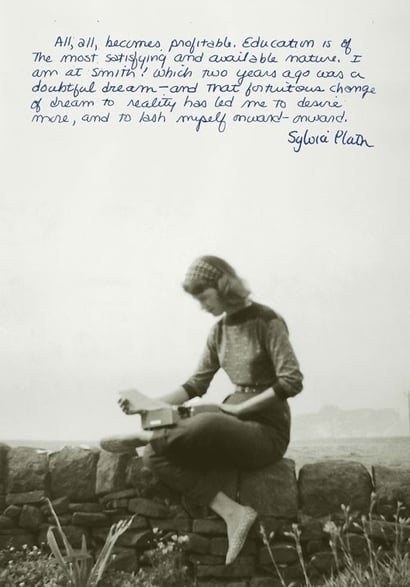 All, all, becomes profitable. Education is of
the most satisfying and available nature. I
am at Smith! Which two years ago was a
doubtful dream—and that fortuitous change
of dream to reality has led me to desire
more, and to lash myself onward—onward.
Sylvia Plath